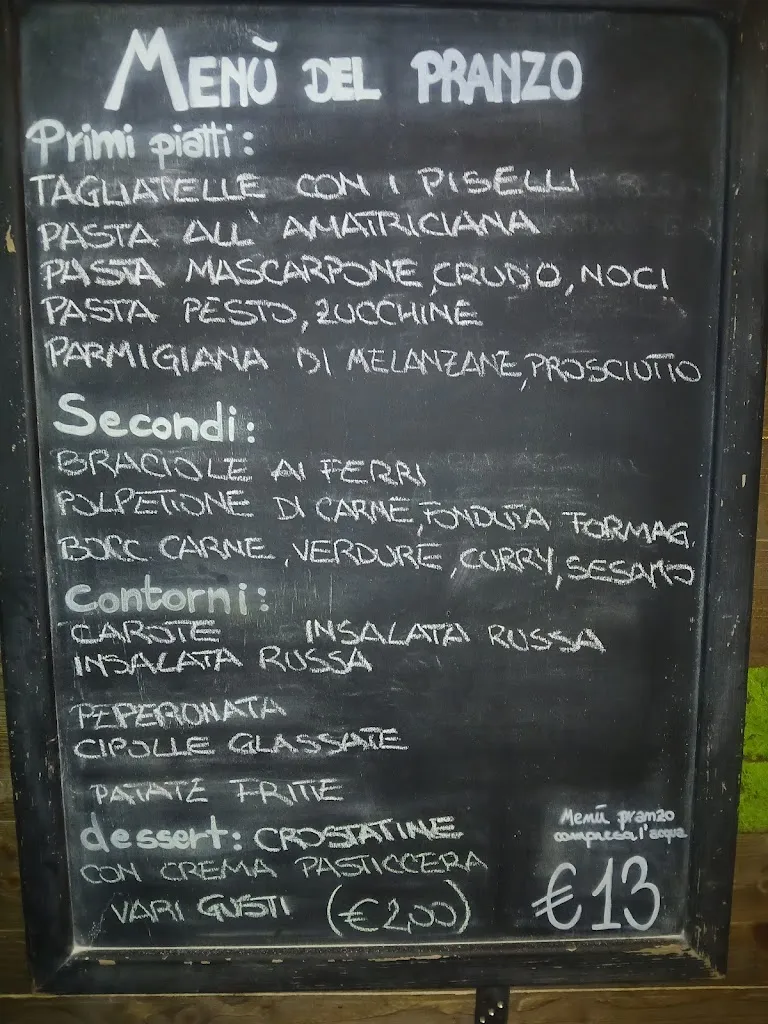 MENÙ DEL PRANZO
Primi piatti:
TAGLIATELLE CON I PISELLI
PASTA ALL'AMATRICIANA
PASTA MASCARPONE, CRUDO, NOCI
PASTA PESTO, ZUCCHINE
PARMIGIANA DI MELANZANE, PROSCIUTTO
Secondi:
BRACIOLE AI FERRI
POLPETTONE DI CARNE, FONDUTA FORMAG.
BOCC CARNE, VERDURE, CURRY, SESAMO
Contorni:
CAROTE INSALATA RUSSA
INSALATA RUSSA
PEPERONATA
CIPOLLE GLASSATE
PATATE FRITTE
dessert: CROSTATINE
CON CREMA PASTICCERA
VARI GUSTI (€2,00)
Menù pranzo
compresa l'acqua
€13